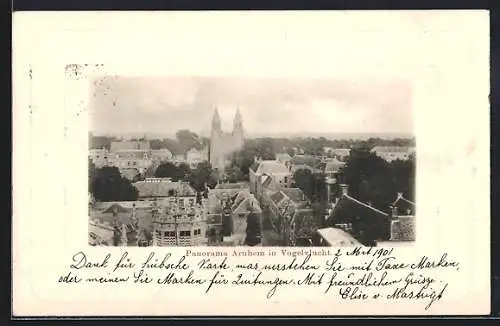 Panorama Arnhem in Vogelvlucht. 2 Mrt 1901
Dank für hübsche Karte, was verstehen Sie mit Taxe Marken,
oder meinen Sie Marken für Zeitungen. Mit freundlichem Grüsze
Elise v. Mastrigt